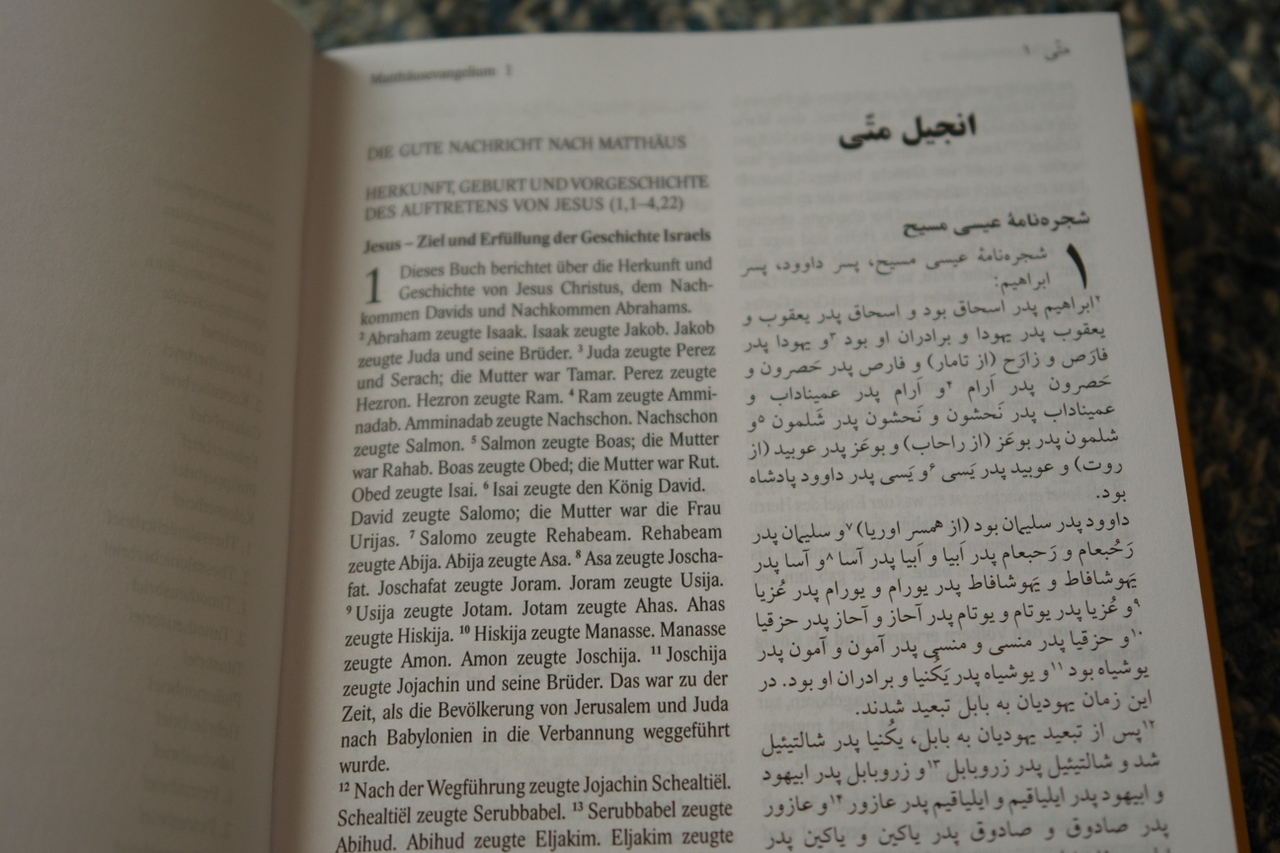 Matthäusevangelium 1
DIE GUTE NACHRICHT NACH MATTHÄUS
HERKUNFT, GEBURT UND VORGESCHICHTE
DES AUFTRETENS VON JESUS (1,1–4,22)
Jesus – Ziel und Erfüllung der Geschichte Israels
1 Dieses Buch berichtet über die Herkunft und
Geschichte von Jesus Christus, dem Nach-
kommen Davids und Nachkommen Abrahams.
² Abraham zeugte Isaak. Isaak zeugte Jakob. Jakob
zeugte Juda und seine Brüder. ³ Juda zeugte Perez
und Serach; die Mutter war Tamar. Perez zeugte
Hezron. Hezron zeugte Ram. ⁴ Ram zeugte Ammi-
nadab. Amminadab zeugte Nachschon. Nachschon
zeugte Salmon. ⁵ Salmon zeugte Boas; die Mutter
war Rahab. Boas zeugte Obed; die Mutter war Rut.
Obed zeugte Isai. ⁶ Isai zeugte den König David.
David zeugte Salomo; die Mutter war die Frau
Urijas. ⁷ Salomo zeugte Rehabeam. Rehabeam
zeugte Abija. Abija zeugte Asa. ⁸ Asa zeugte Joscha-
fat. Joschafat zeugte Joram. Joram zeugte Usija.
⁹ Usija zeugte Jotam. Jotam zeugte Ahas. Ahas
zeugte Hiskija. ¹⁰ Hiskija zeugte Manasse. Manasse
zeugte Amon. Amon zeugte Joschija. ¹¹ Joschija
zeugte Jojachin und seine Brüder. Das war zu der
Zeit, als die Bevölkerung von Jerusalem und Juda
nach Babylonien in die Verbannung weggeführt
wurde.
¹² Nach der Wegführung zeugte Jojachin Schealtiël.
Schealtiël zeugte Serubbabel. ¹³ Serubbabel zeugte
Abihud. Abihud zeugte Eljakim. Eljakim zeugte
متّی ۱
انجیل متّی
شجره‌نامهٔ عیسی مسیح
۱ شجره‌نامهٔ عیسی مسیح، پسر داوود، پسر
ابراهیم:
۲ابراهیم پدر اسحاق بود و اسحاق پدر یعقوب و
یعقوب پدر یهودا و برادران او بود ۳و یهودا پدر
فارَص و زارَح (از تامار) و فارص پدر حَصرون و
حَصرون پدر اَرام ۴و اَرام پدر عمیناداب و
عمیناداب پدر نَحشون و نَحشون پدر شَلمون ۵و
شلمون پدر بوعَز (از راحاب) و بوعَز پدر عوبید (از
روت) و عوبید پدر یَسی ۶و یَسی پدر داوود پادشاه
بود.
داوود پدر سلیمان بود (از همسر اوریا) ۷و سلیمان پدر
رَحُبعام و رَحبعام پدر اَبیا و اَبیا پدر آسا ۸و آسا پدر
یَهوشافاط و یَهوشافاط پدر یورام و یورام پدر عُزیا
۹و عُزیا پدر یوتام و یوتام پدر آحاز و آحاز پدر حزقیا
۱۰و حزقیا پدر منسی و منسی پدر آمون و آمون پدر
یوشیاه بود ۱۱و یوشیاه پدر یَکُنیا و برادران او بود. در
این زمان یهودیان به بابل تبعید شدند.
۱۲پس از تبعید یهودیان به بابل، یکُنیا پدر شالتیئیل
شد و شالتیئیل پدر زروبابل ۱۳و زروبابل پدر ابیهود
و ابیهود پدر ایلیاقیم و ایلیاقیم پدر عازور ۱۴و عازور
پدر صادوق و صادوق پدر یاکین و یاکین پدر